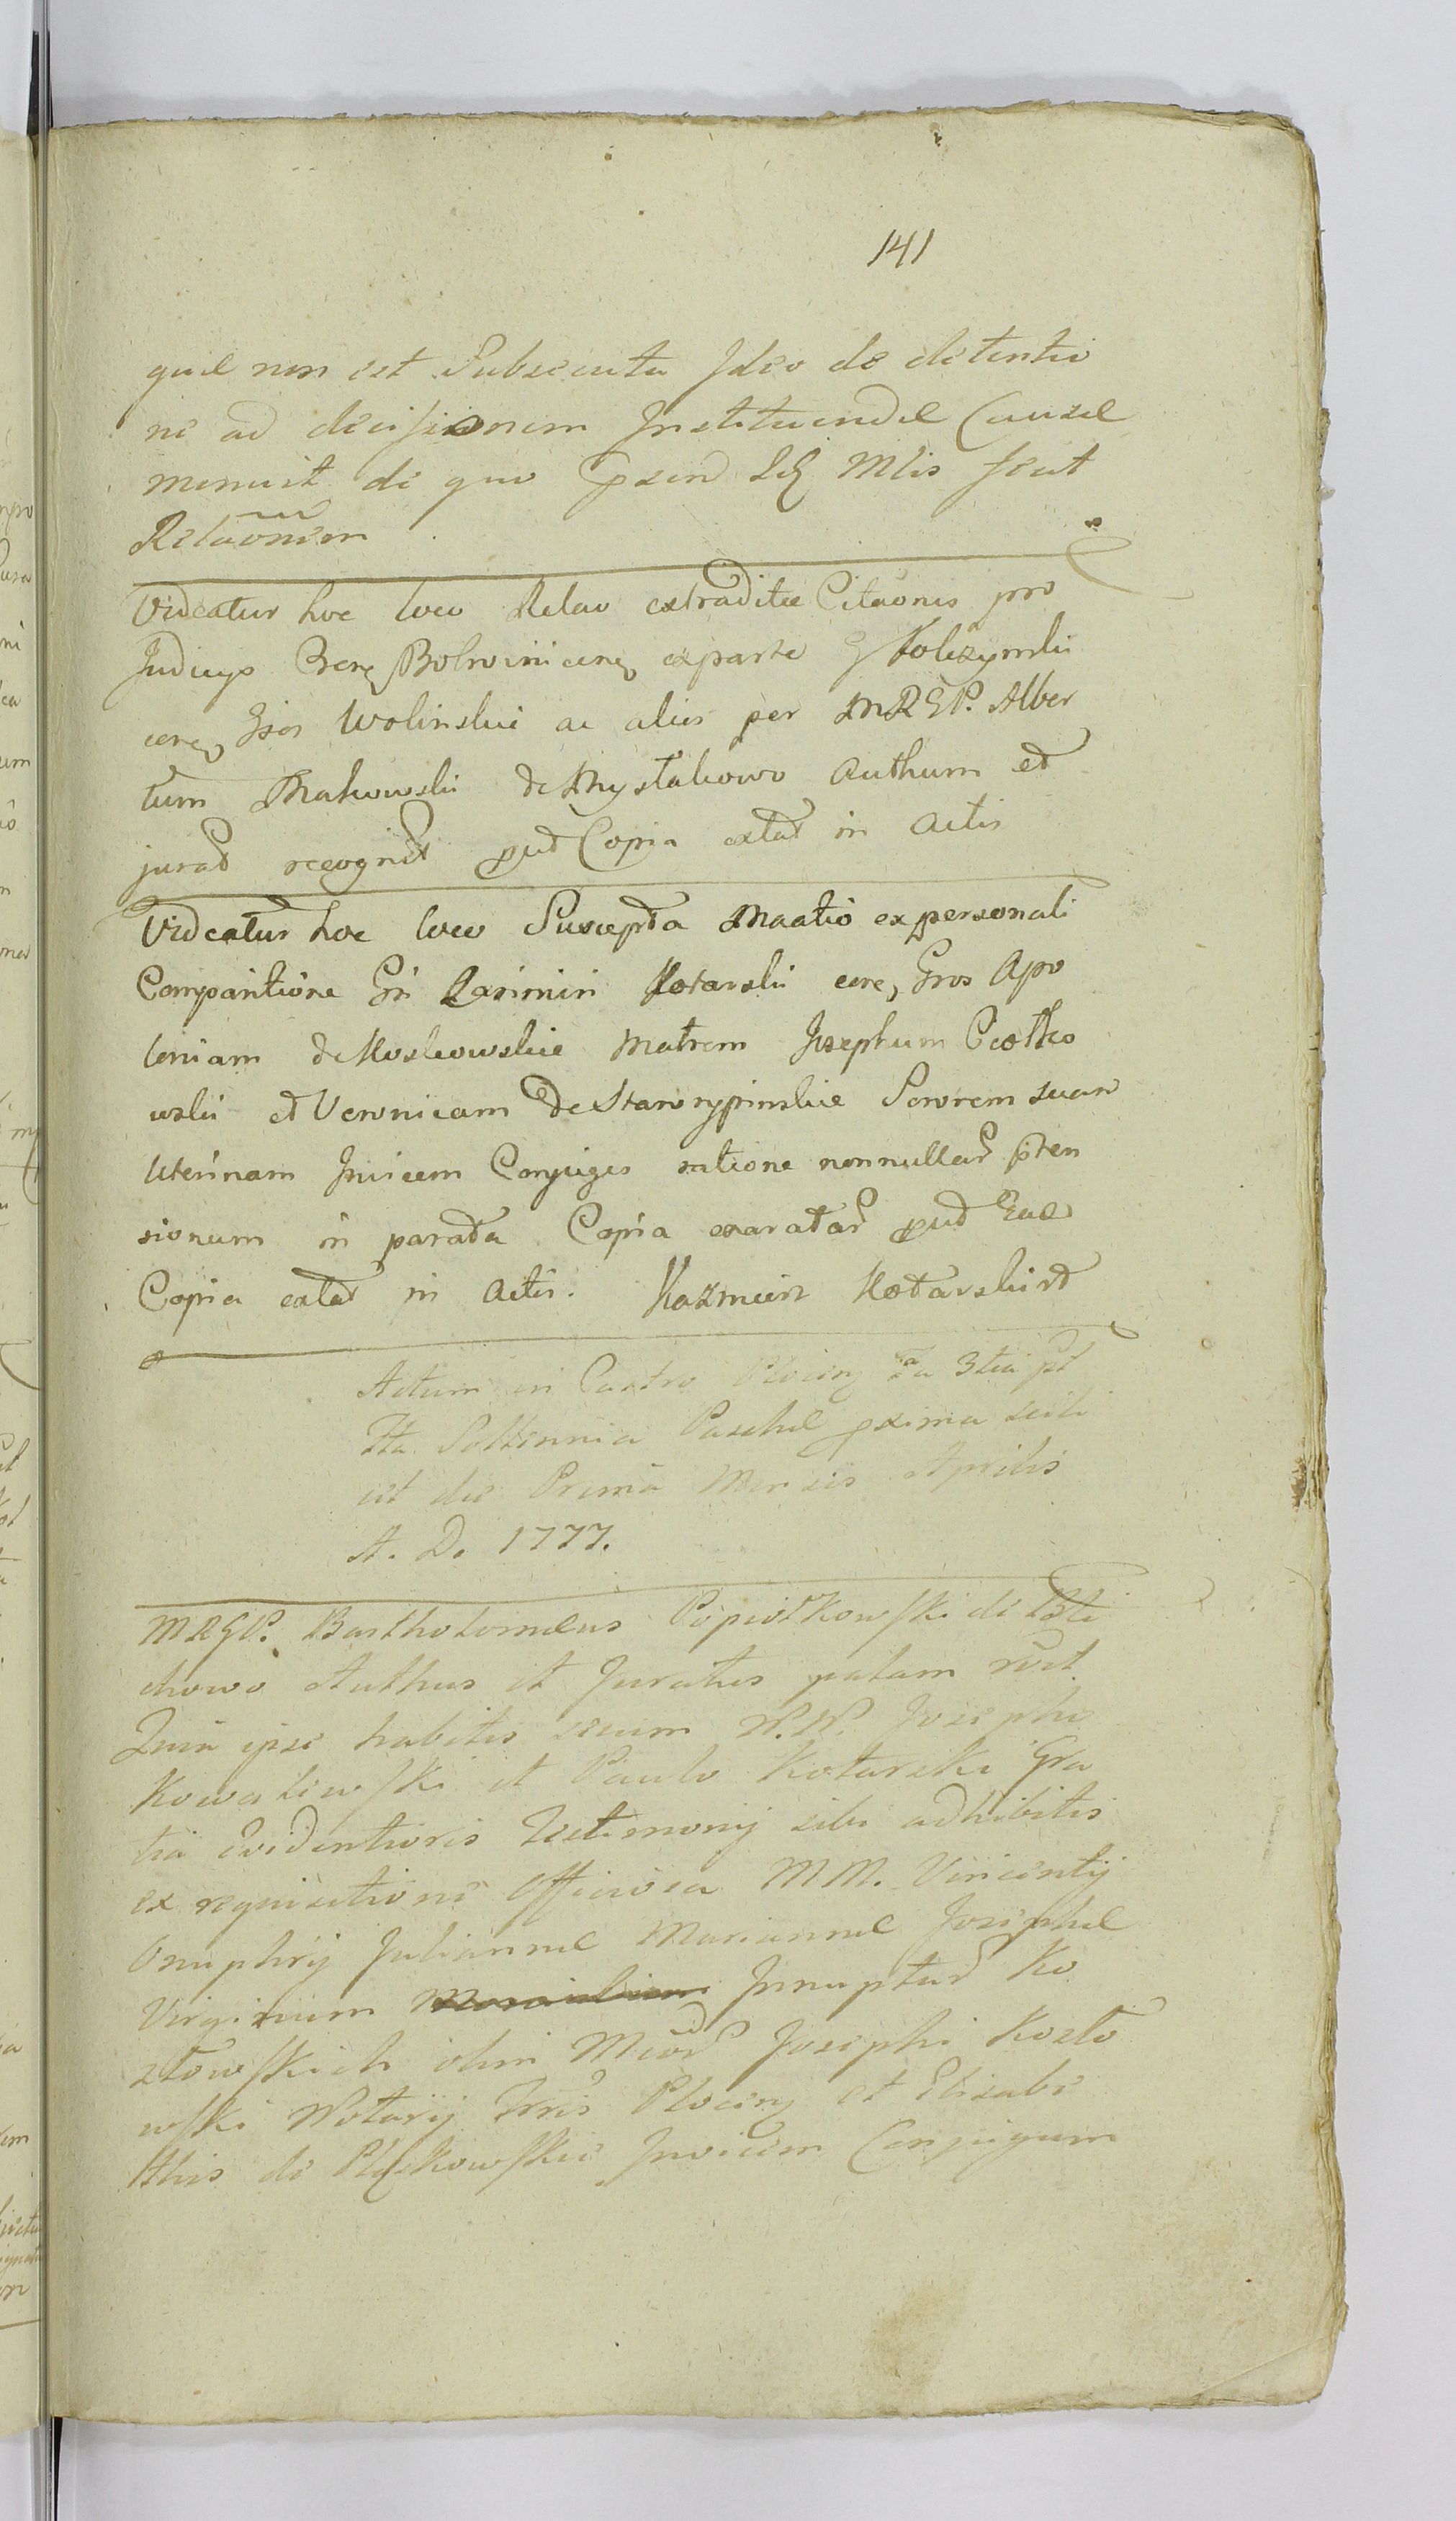 141
quæ non est Subsecuta Ideo de detentio
ne ad decisionem Instituendæ Causæ
monuit de quo psend Mlis fecit
Relaõnem
Videatur hoc loco Relao extraditæ Citaonis pro
Judicys exparte Kolczynski
Wolinskie ac alios per MRGP. Alber
tum Makowski de Mystkowo Authum et
jurat recognit put Copia extat in Actis
Videatur hoc loco Suscepta Maatio ex personali
Comparitione Gri Kasimiri Kotarski Gros Apo
loniam de Moskowskie Matrem Josephum Ciołko
wski et Veronicam de Starorypinskie Sororem suam
Uterinam Invicem Conjuges ratione nonnullar pten
sionum in parata Copia exaratar put Eae
Copia extat in Actis. Kazmierz Kotarski
Actum in Castro Plocen 3tia pt
Sta Sollennia Paschæ pxima scili
cet die Prima Mensis Aprilis
A. D. 1777.
MRGP. Bartholomæus Popiołkowski de
chowo Authus et Juratus palam rcit
Quia ipse habitis secum N.N. Josepho
Kowalewski et Paulo Kotarski Gra
tia Evidentioris Testimonij sibi adhibitis
ex requisitione Officiosa MM. Vincentij
Onuphrij Juliannæ Mariannæ Josephæ
Virginum Innuptar Ko
złowskich olim Josephi Kozło
wski Notarij Plocen et Elisabe
this de Invicem Conjugum